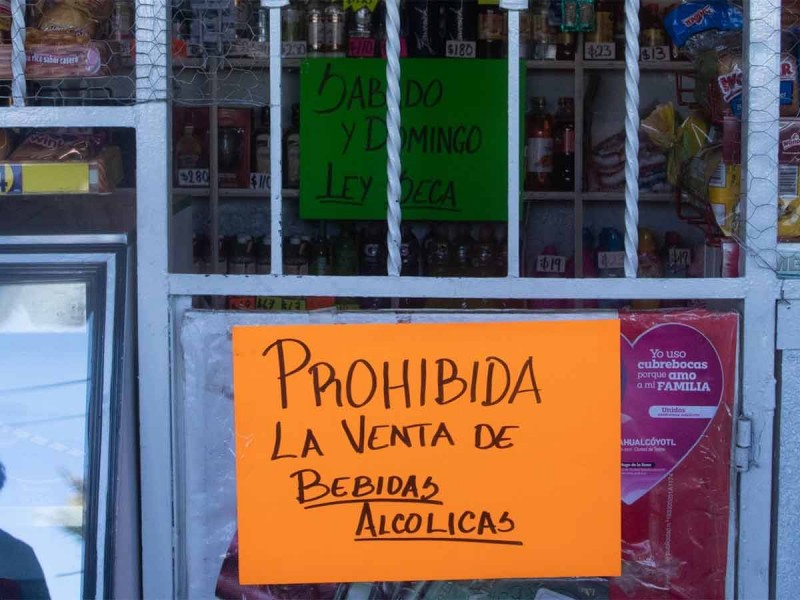 $180
$23
$13
SABADO
Y DOMINGO
LEY SECA
rica sabor casero
$280
$19
PROHIBIDA
LA VENTA DE
BEBIDAS
ALCOLICAS
Yo uso
cubrebocas
porque amo
a mi FAMILIA
Unidos
AHUALCÓYOTL